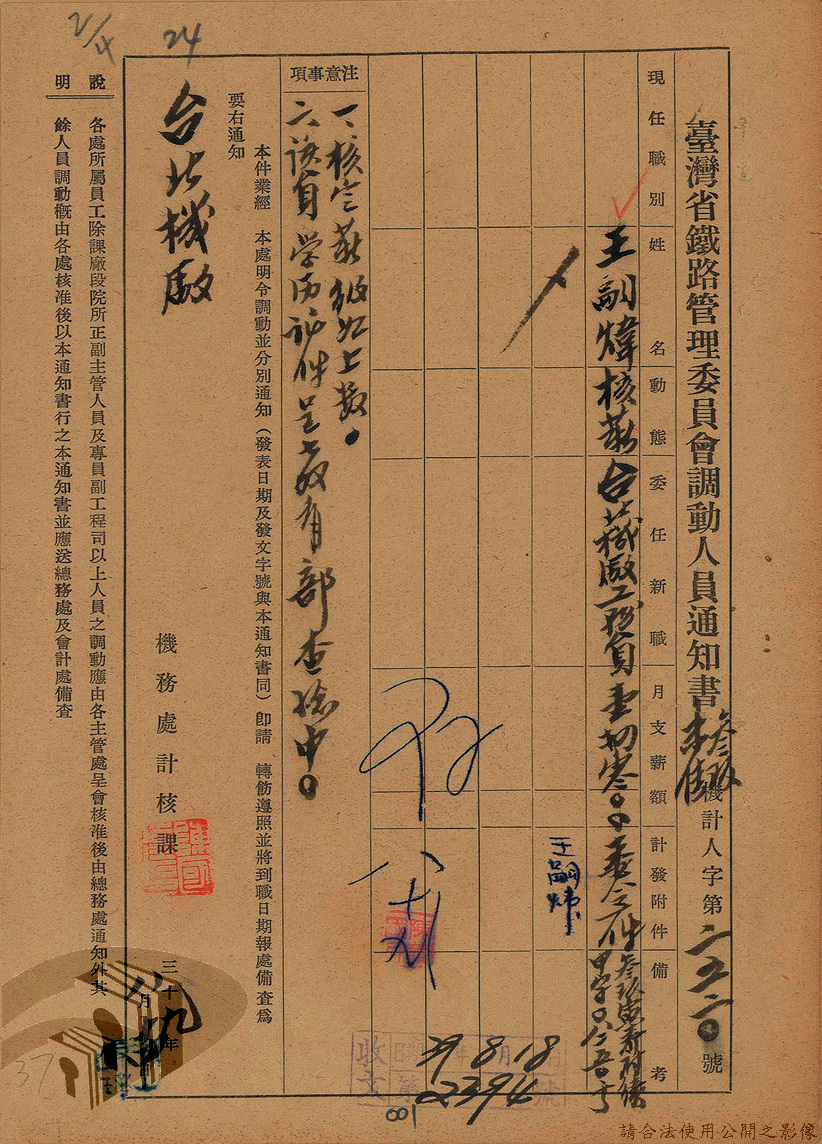 臺灣省鐵路管理委員會調動人員通知書
機計人字第二五二〇號
現任職別 姓名 動態 委任新職 月支薪額 計發附件 備考
王嗣煒 核薪 台北機廠工務員 委令一件
王嗣煒
注意事項
一、核定薪級如上數。
二、該員学历証件呈教育部查驗中。
本件業經 本處明令調動並分別通知（發表日期及發文字號與本通知書同）即請 轉飭遵照並將到職日期報處備查為
要右通知
台北機廠
機務處計核課
三十九年八月
說明
各處所屬員工除課廠段院所正副主管人員及專員副工程司以上人員之調動應由各主管處呈會核准後由總務處通知外其
餘人員調動概由各處核准後以本通知書行之本通知書並應送總務處及會計處備查
收文 39年8月18日 第2394號
2/4
24
37
81
請合法使用公開之影像